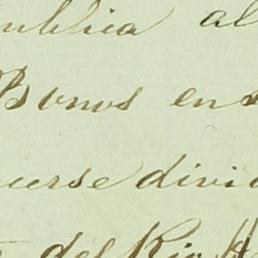 ublica al
Bonos en
cerse divi
del Rio H